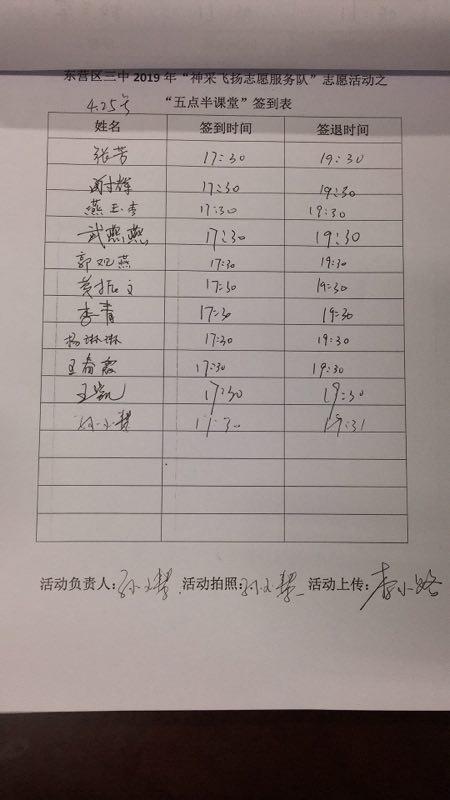 东营区三中 2019 年“神采飞扬志愿服务队”志愿活动之
4.25号 “五点半课堂”签到表
姓名 签到时间 签退时间
张芳 17:30 19:30
17:30 19:30
燕玉 17:30 19:30
武燕燕 17:30 19:30
郭 燕 17:30 19:30
黄振文 17:30 19:30
李青 17:30 19:30
杨琳琳 17:30 19:30
王春霞 17:30 19:30
王凯 17:30 19:30
孙文慧 17:30 19:31
活动负责人:孙文慧 活动拍照:孙文慧 活动上传:李小路